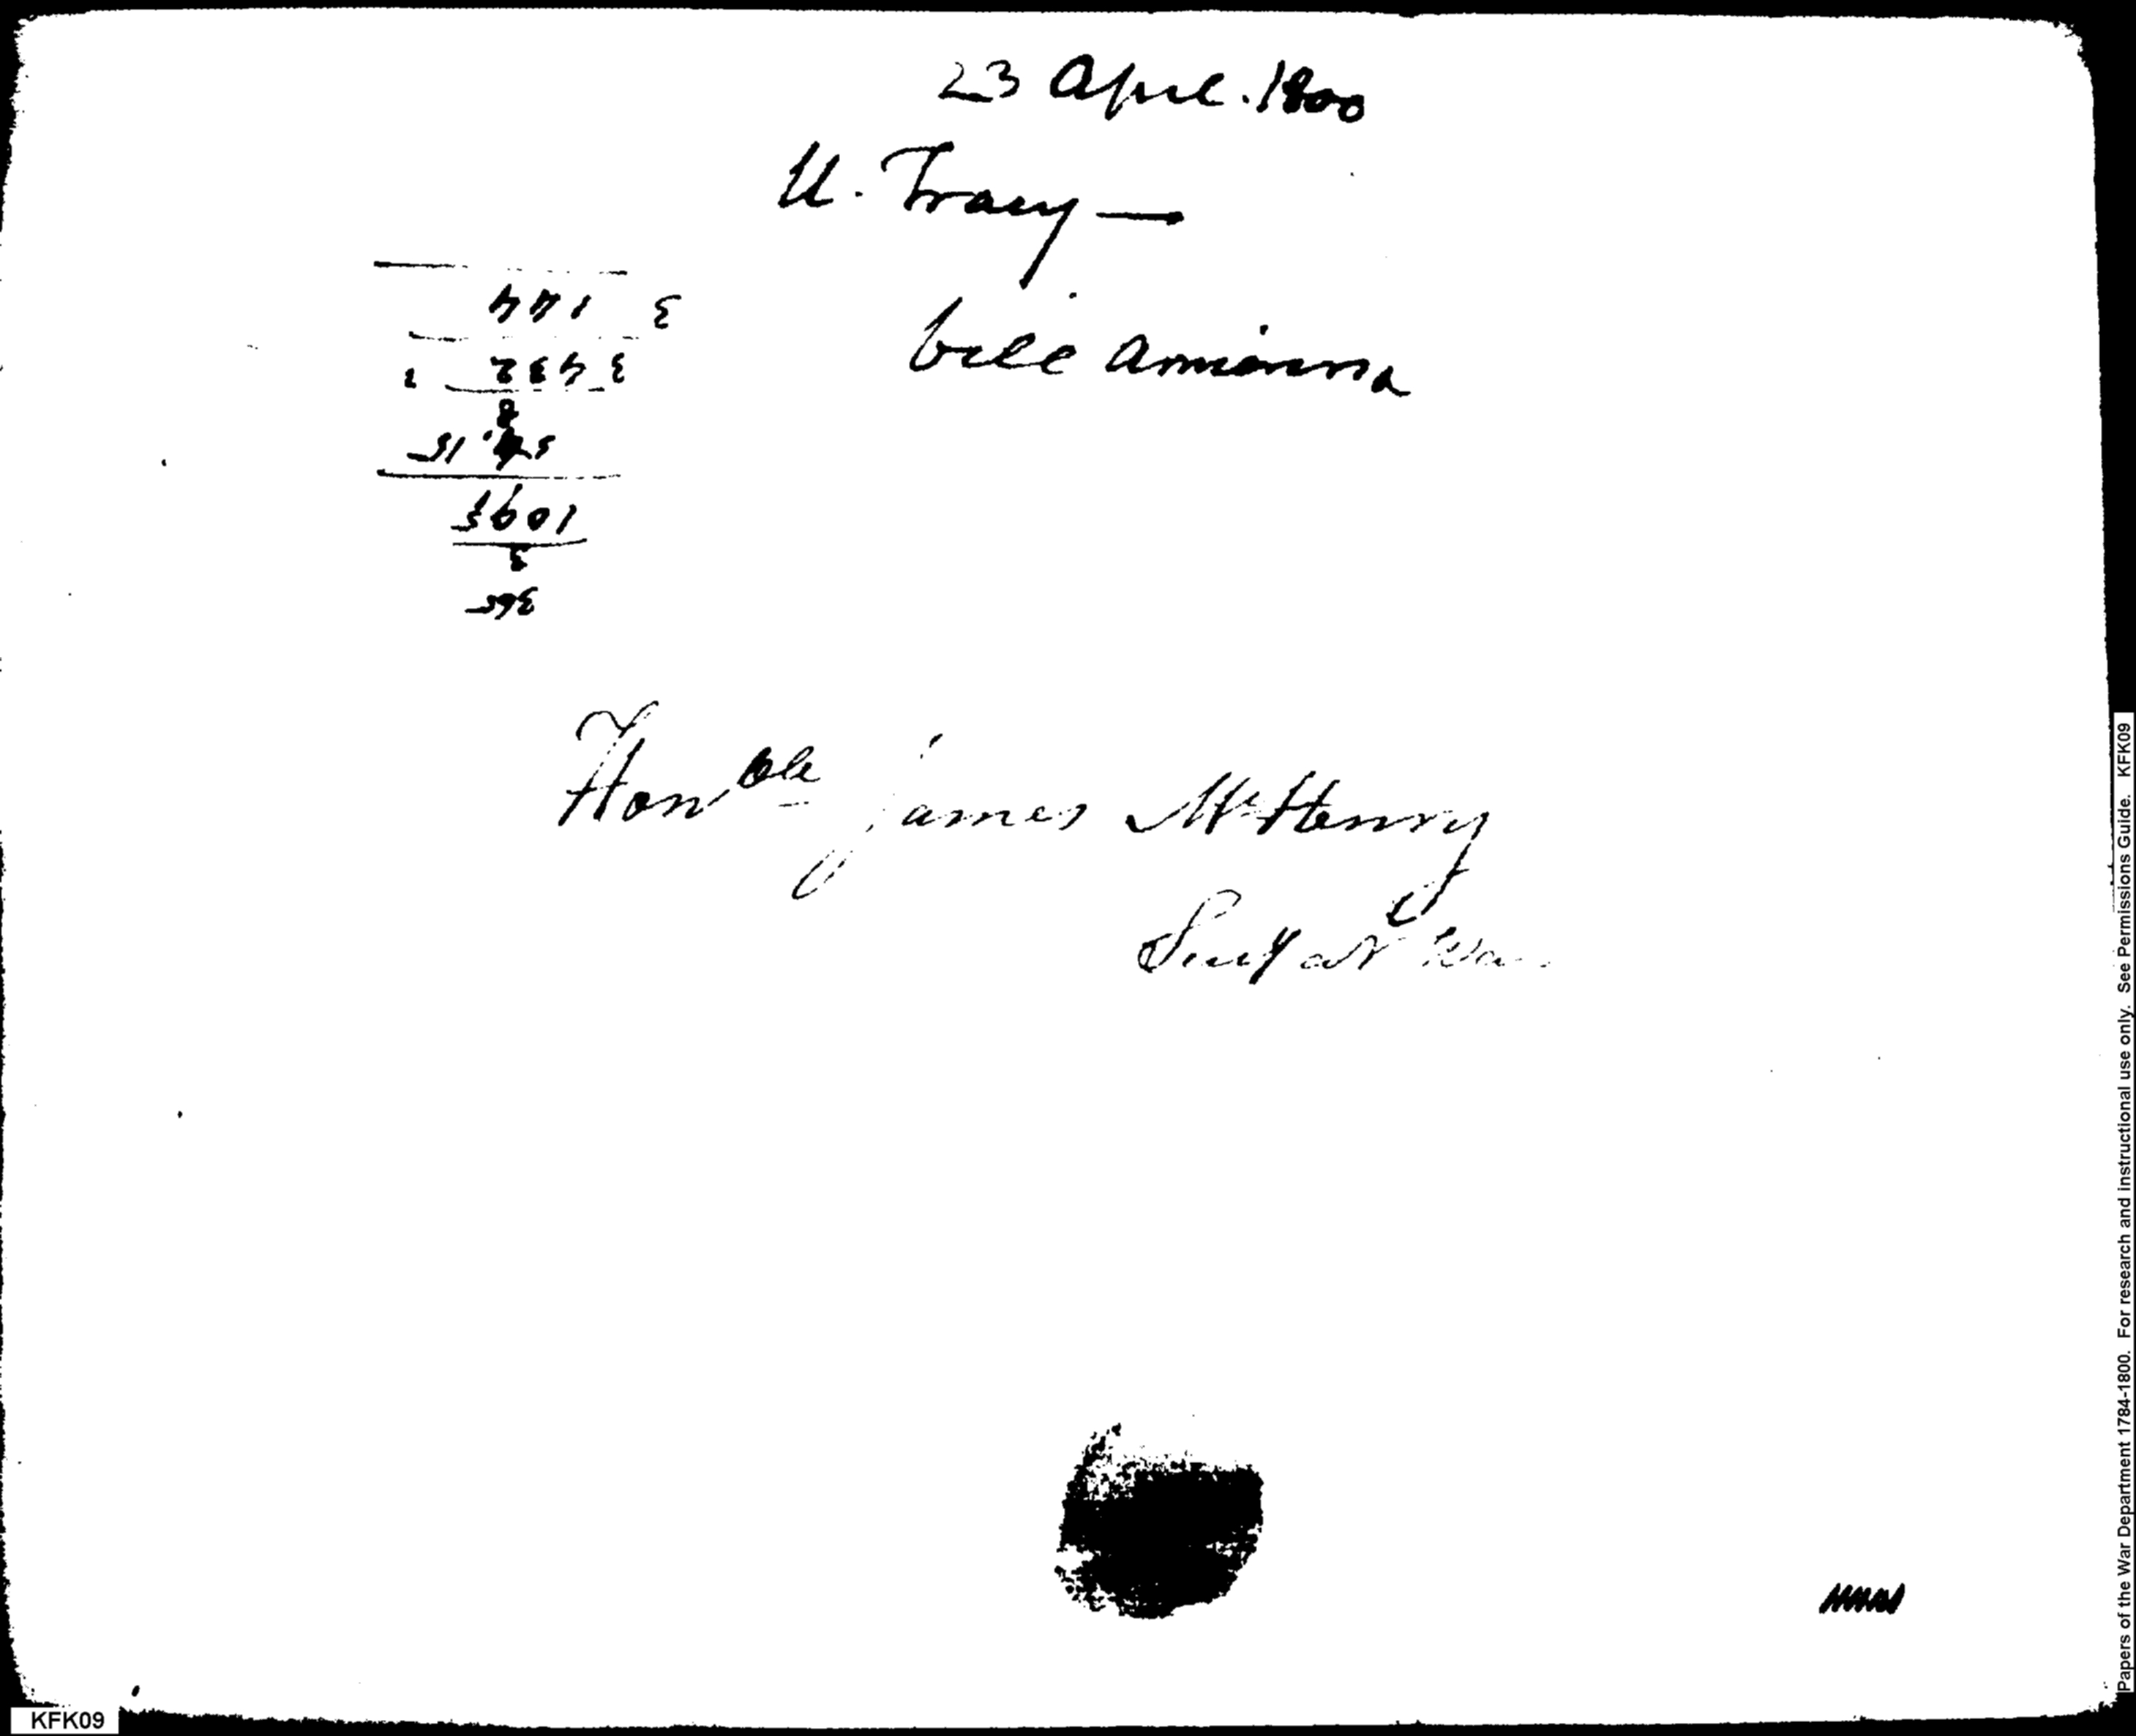 23 April. 1800
U. Tracy —
bill
365
3
1095
144
Honble James McHenry
Secy at War
Papers of the War Department 1784-1800. For research and instructional use only. See Permissions Guide. KFK09
KFK09